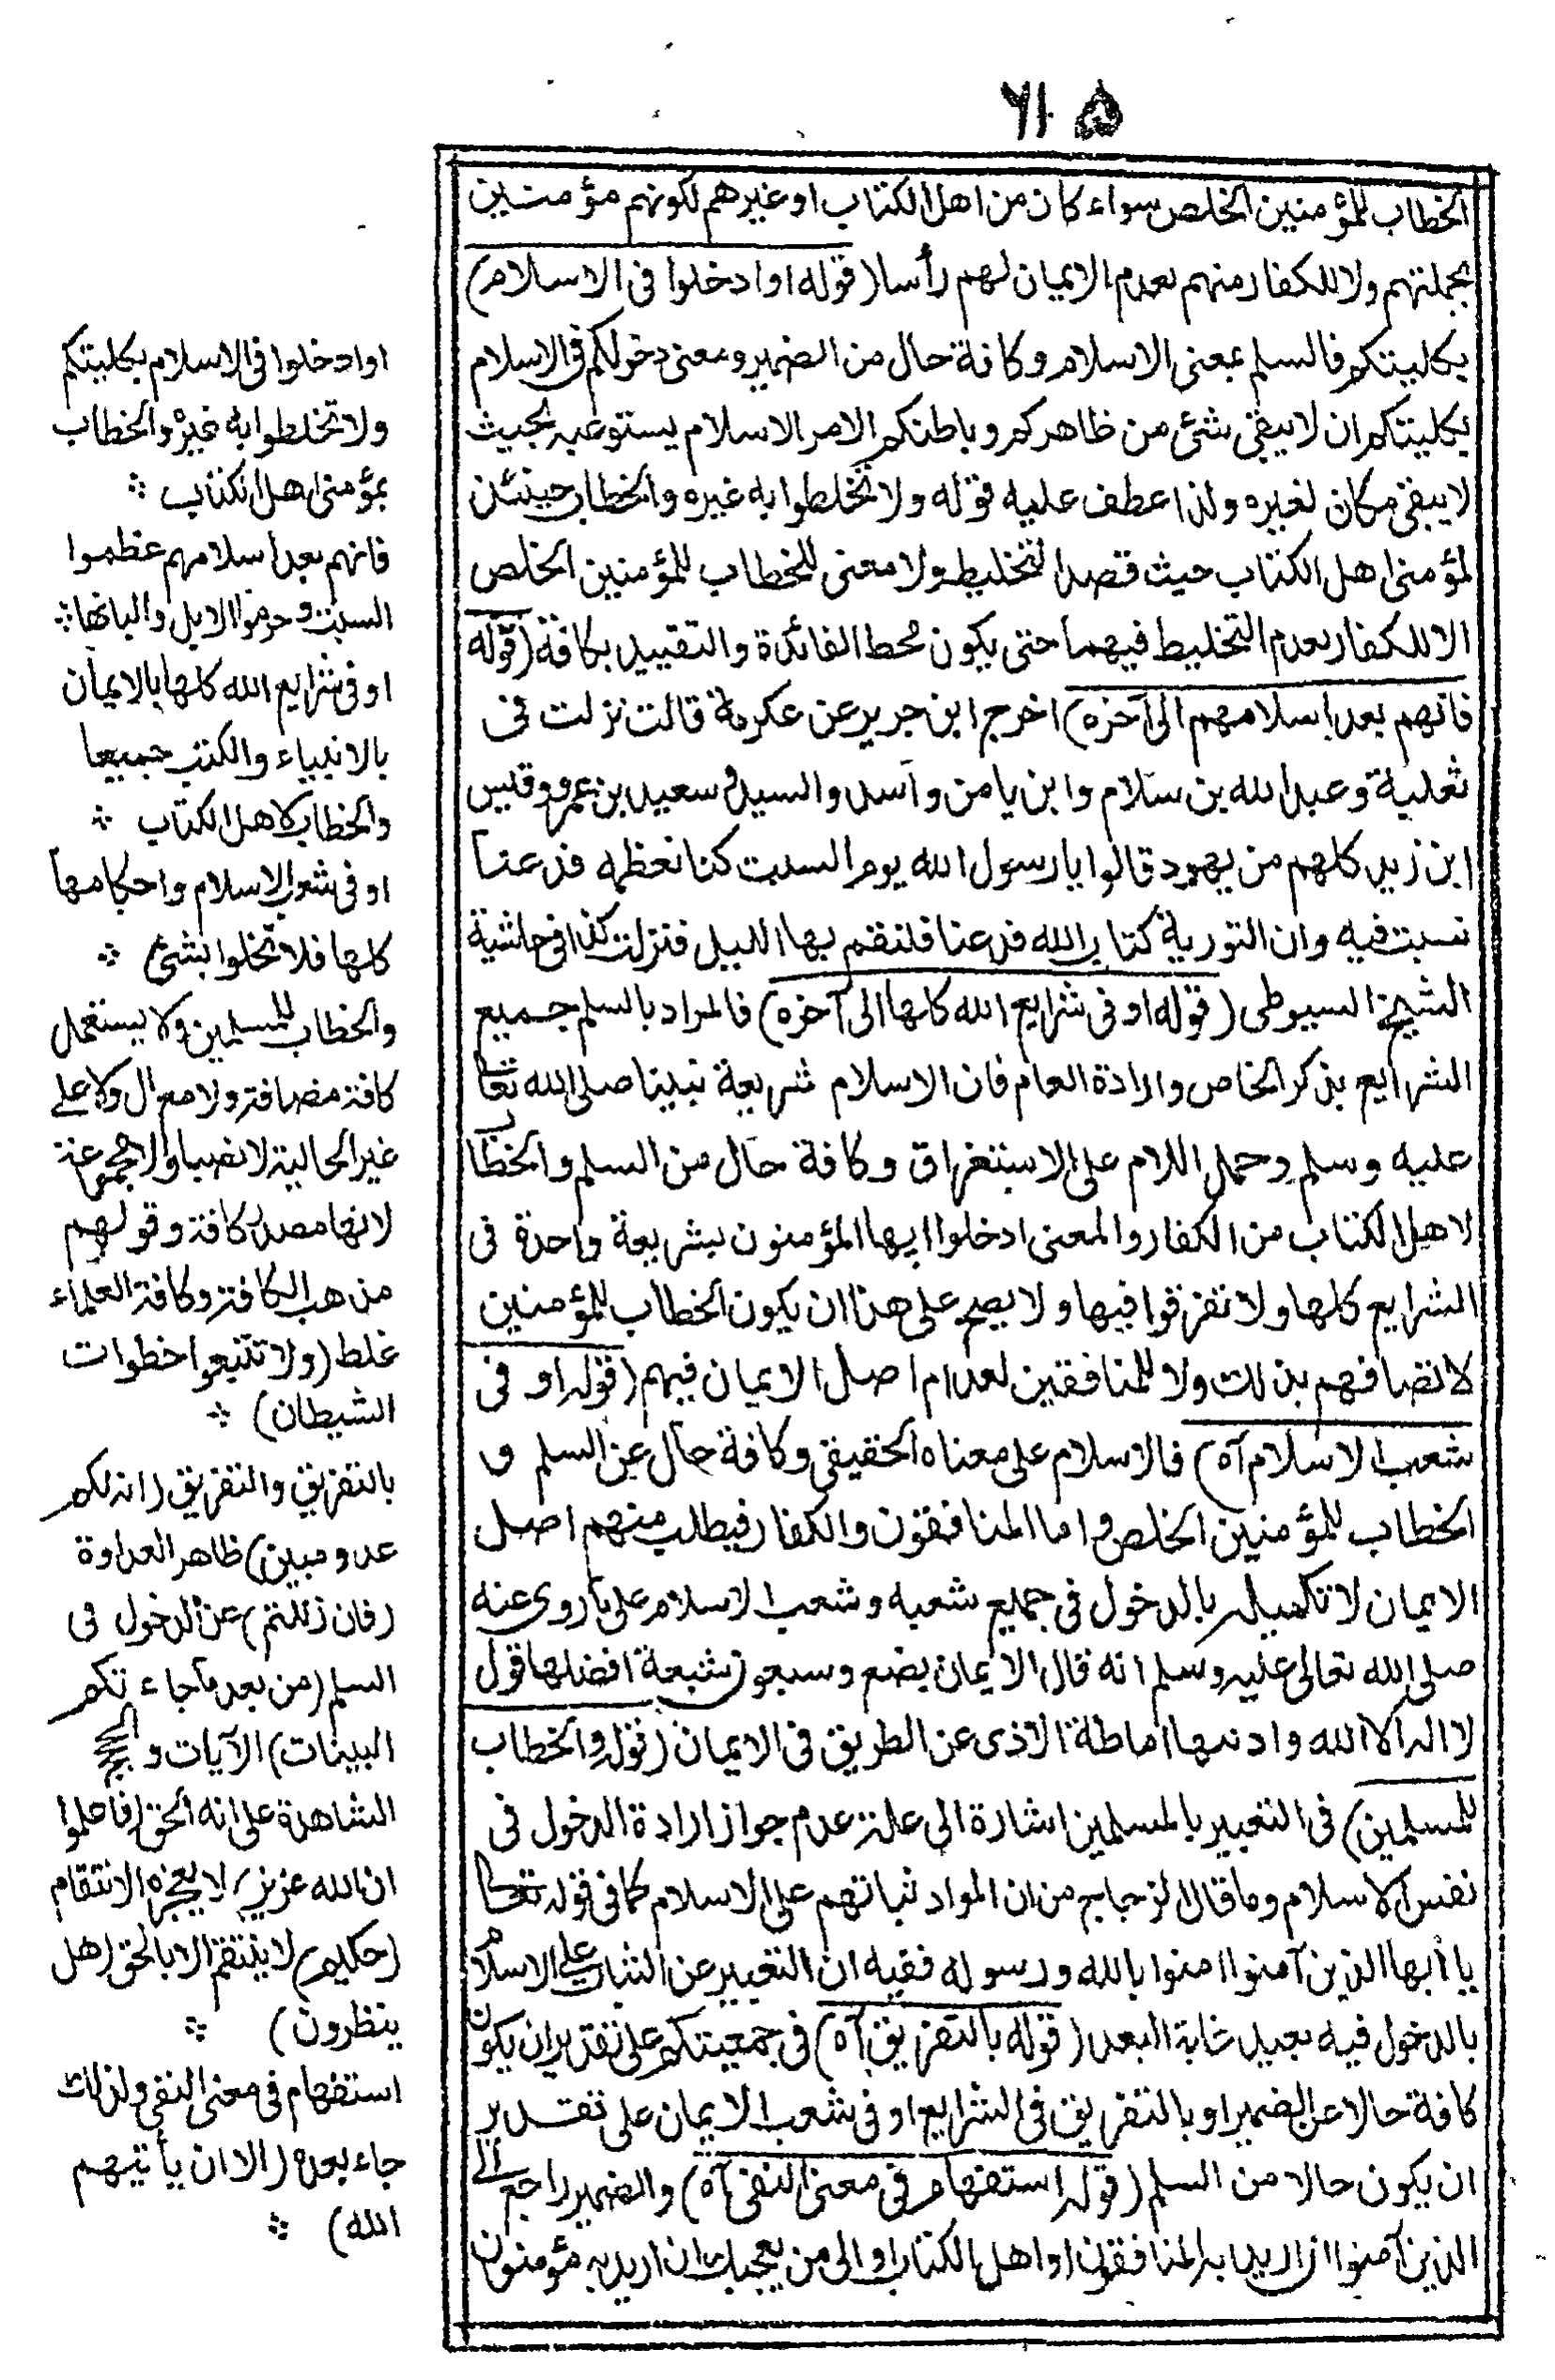 ٦١٥
الخطاب للمؤمنين الخلص سواء كان من اهل الكتاب او غيرهم لكونهم مؤمنين
بجملتهم ولا للكفار منهم لعدم الايمان لهم رأسا (قوله او ادخلوا فى الاسلام)
بكليتكم فالسلم بمعنى الاسلام وكافة حال من الضمير ومعنى دخولكم فى الاسلام
بكليتكم ان لا يبقى شئ من ظاهركم وباطنكم الا والاسلام يستوعبه بحيث
لا يبقى مكان لغيره ولذا عطف عليه قوله ولا تخلطوا به غيره والخطاب حينئذ
لمؤمنى اهل الكتاب حيث قصدا لتخليط ولا معنى للخطاب للمؤمنين الخلص
الا للكفار لعدم التخليط فيهما حتى يكون محط الفائدة والتقييد بكافة (قوله
فانهم بعد اسلامهم الى آخره) اخرج ابن جرير عن عكرمة قالت نزلت فى
ثعلبة وعبد الله بن سلام وابن يامن واسد والسيد وسعيد بن عمرو وقيس
ابن زيد كلهم من يهود قالوا يا رسول الله يوم السبت كنا نعظمه فدعنا
نسبت فيه وان التورية كتاب الله فدعنا فلنقم بها الليل فنزلت كذا فى حاشية
الشيخ السيوطى (قوله او فى شرايع الله كلها الى آخره) فالمراد بالسلم جميع
الشرايع بذكر الخاص وارادة العام فان الاسلام شريعة نبينا صلى الله تعا
عليه وسلم وحمل اللام على الاستغراق وكافة حال من السلم والخطاب
لاهل الكتاب من الكفار والمعنى ادخلوا ايها المؤمنون بشريعة واحدة فى
الشرايع كلها ولا تفرقوا فيها ولا يصح على هذا ان يكون الخطاب للمؤمنين
لاتصافهم بذلك ولا للمنافقين لعدام اصل الايمان فيهم (قوله او فى
شعب الاسلام آه) فالاسلام على معناه الحقيقى وكافة حال عن السلم و
الخطاب للمؤمنين الخلص واما المنافقون والكفار فيطلب منهم اصل
الايمان لا تكميله بالدخول فى جميع شعبه وشعب الاسلام على ما روى عنه
صلى الله تعالى عليه وسلم انه قال الايمان بضع وسبعون شعبة افضلها قول
لا اله الا الله وادنيها اماطة الاذى عن الطريق فى الايمان (قوله والخطاب
للمسلمين) فى التعبير بالمسلمين اشارة الى علة عدم جواز ارادة الدخول فى
نفس الاسلام وما قال الزجاج من ان المراد ثباتهم على الاسلام كما فى قوله تعا
يا أيها الذين آمنوا امنوا بالله ورسوله ففيه ان التعبير عن الثبات على الاسلام
بالدخول فيه بعيد غاية البعد (قوله بالتفريق آه) فى جمعيتكم على تقدير ان يكون
كافة حالا عن الضمير او بالتفريق فى الشرايع او فى شعب الايمان على تقدير
ان يكون حالا من السلم (قوله استفهام فى معنى النفى آه) والضمير راجع الى
الذين آمنوا ان اريد به المنافقون او اهل الكتاب او الى من يعجبك ان اريد به مؤمنون
او ادخلوا فى الاسلام بكليتكم
ولا تخلطوا به غيره والخطاب
بمؤمنى اهل الكتاب
فانهم بعد اسلامهم عظموا
السبت وحرموا الابل والبانها
او فى شرايع الله كلها بالايمان
بالانبياء والكتب جميعا
والخطاب لاهل الكتاب
او فى شعب الاسلام واحكامها
كلها فلا تخلوا بشئ
والخطاب للمسلمين ولا يستعمل
كافة مضافة ولا مع ال ولا على
غير الحالية لانصباو لا مجموعة
لانها مصدر كافة وقولهم
مذهب الكافة وكافة العلماء
غلط (ولا تتبعوا خطوات
الشيطان)
بالتفريق والتفريق (انه لكم
عدو مبين) ظاهر العداوة
(فان زللتم) عن الدخول فى
السلم (من بعد ما جاءتكم
البينات) الآيات و الحجج
الشاهدة على انه الحق (فاعلموا
ان الله عزيز) لا يعجزه الانتقام
(حكيم) لا ينتقم الا بالحق (هل
ينظرون)
استفهام فى معنى النفى ولذلك
جاء بعده (الا ان يأتيهم
الله)